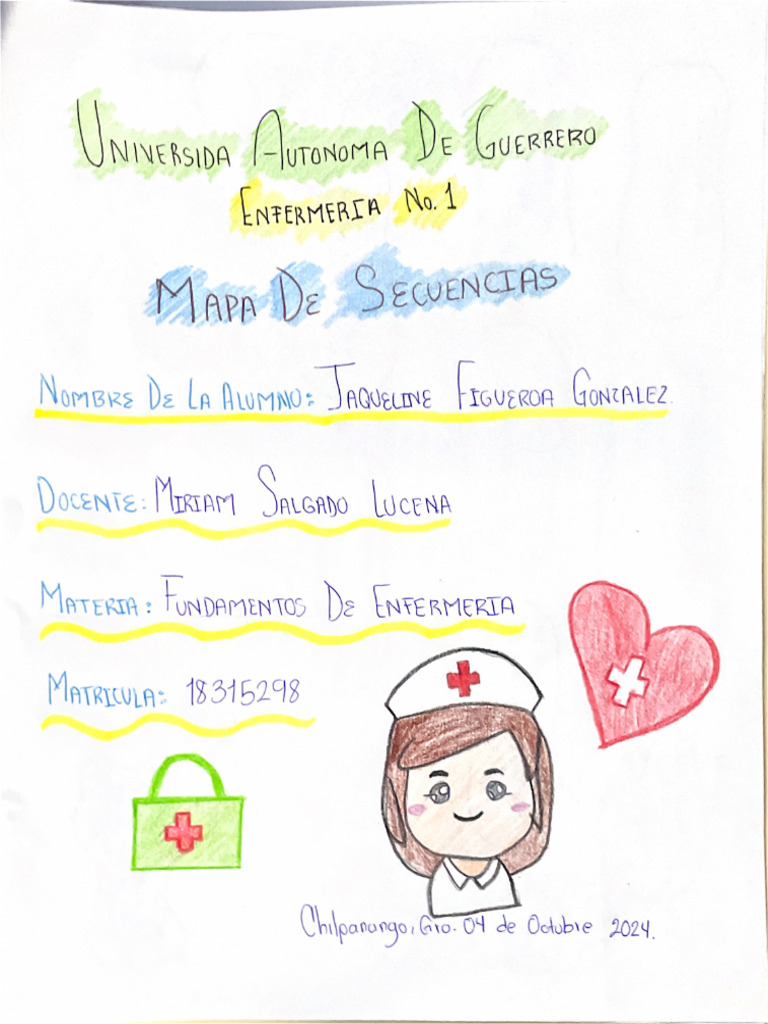 UNIVERSIDA AUTONOMA DE GUERRERO
ENFERMERIA No. 1
MAPA DE SECUENCIAS
NOMBRE DE LA ALUMNO: JAQUELINE FIGUEROA GONZALEZ.
DOCENTE: MIRIAM SALGADO LUCENA
MATERIA: FUNDAMENTOS DE ENFERMERIA
MATRICULA: 18315298
Chilpanango, Gro. 04 de Octubre 2024.